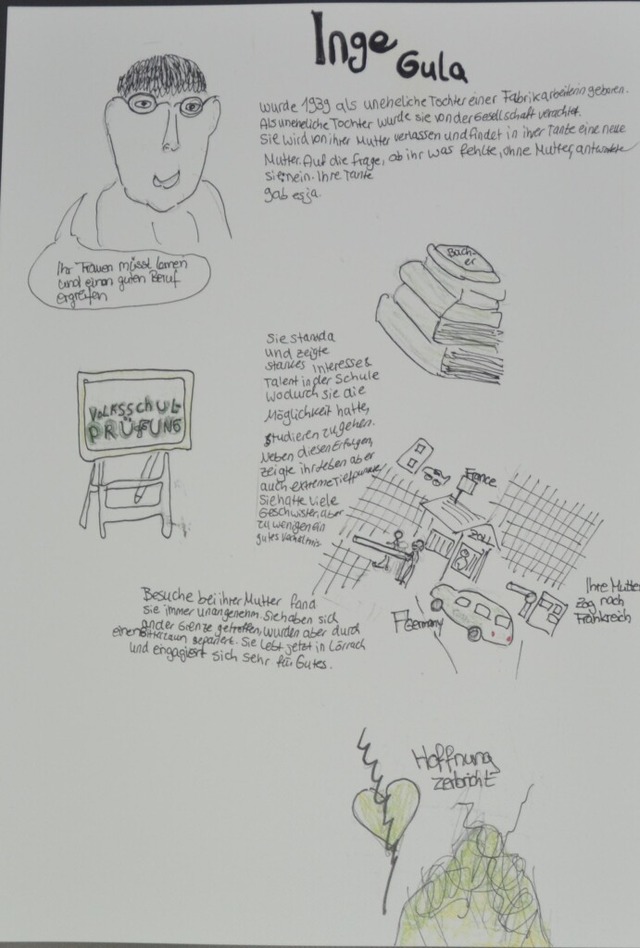 Inge
Gula
wurde 1939 als uneheliche Tochter einer Fabrikarbeiterin geboren.
Als uneheliche Tochter wurde sie von der Gesellschaft verachtet.
Sie wird von ihrer Mutter verlassen und findet in ihrer Tante eine neue
Mutter. Auf die frage, ob ihr was fehlte, ohne Mutter, antwortete
sie: nein. Ihre Tante
gab es ja.
Ihr Frauen müsst lernen
und einen guten Beruf
ergreifen
Büch-
er
Sie stand da
und zeigte
starkes Interesse &
Talent in der Schule
wodurch sie die
Möglichkeit hatte,
studieren zu gehen.
Neben diesen Erfolgen,
zeigte ihr Leben aber
auch extreme Tiefpunkte
Sie hatte viele
Geschwister, aber
zu wenigen ein
gutes Verhältnis
VOLKSSCHUL
PRÜFUNG
France
ZOLL
Germany
Ihre Mutter
zog nach
Frankreich
Besuche bei ihrer Mutter fand
sie immer unangenehm. Sie haben sich
an der Grenze getroffen, wurden aber durch
einen Gitterzaun separiert. Sie lebt jetzt in Lörrach
und engagiert sich sehr für Gutes.
Hoffnung
zerbricht